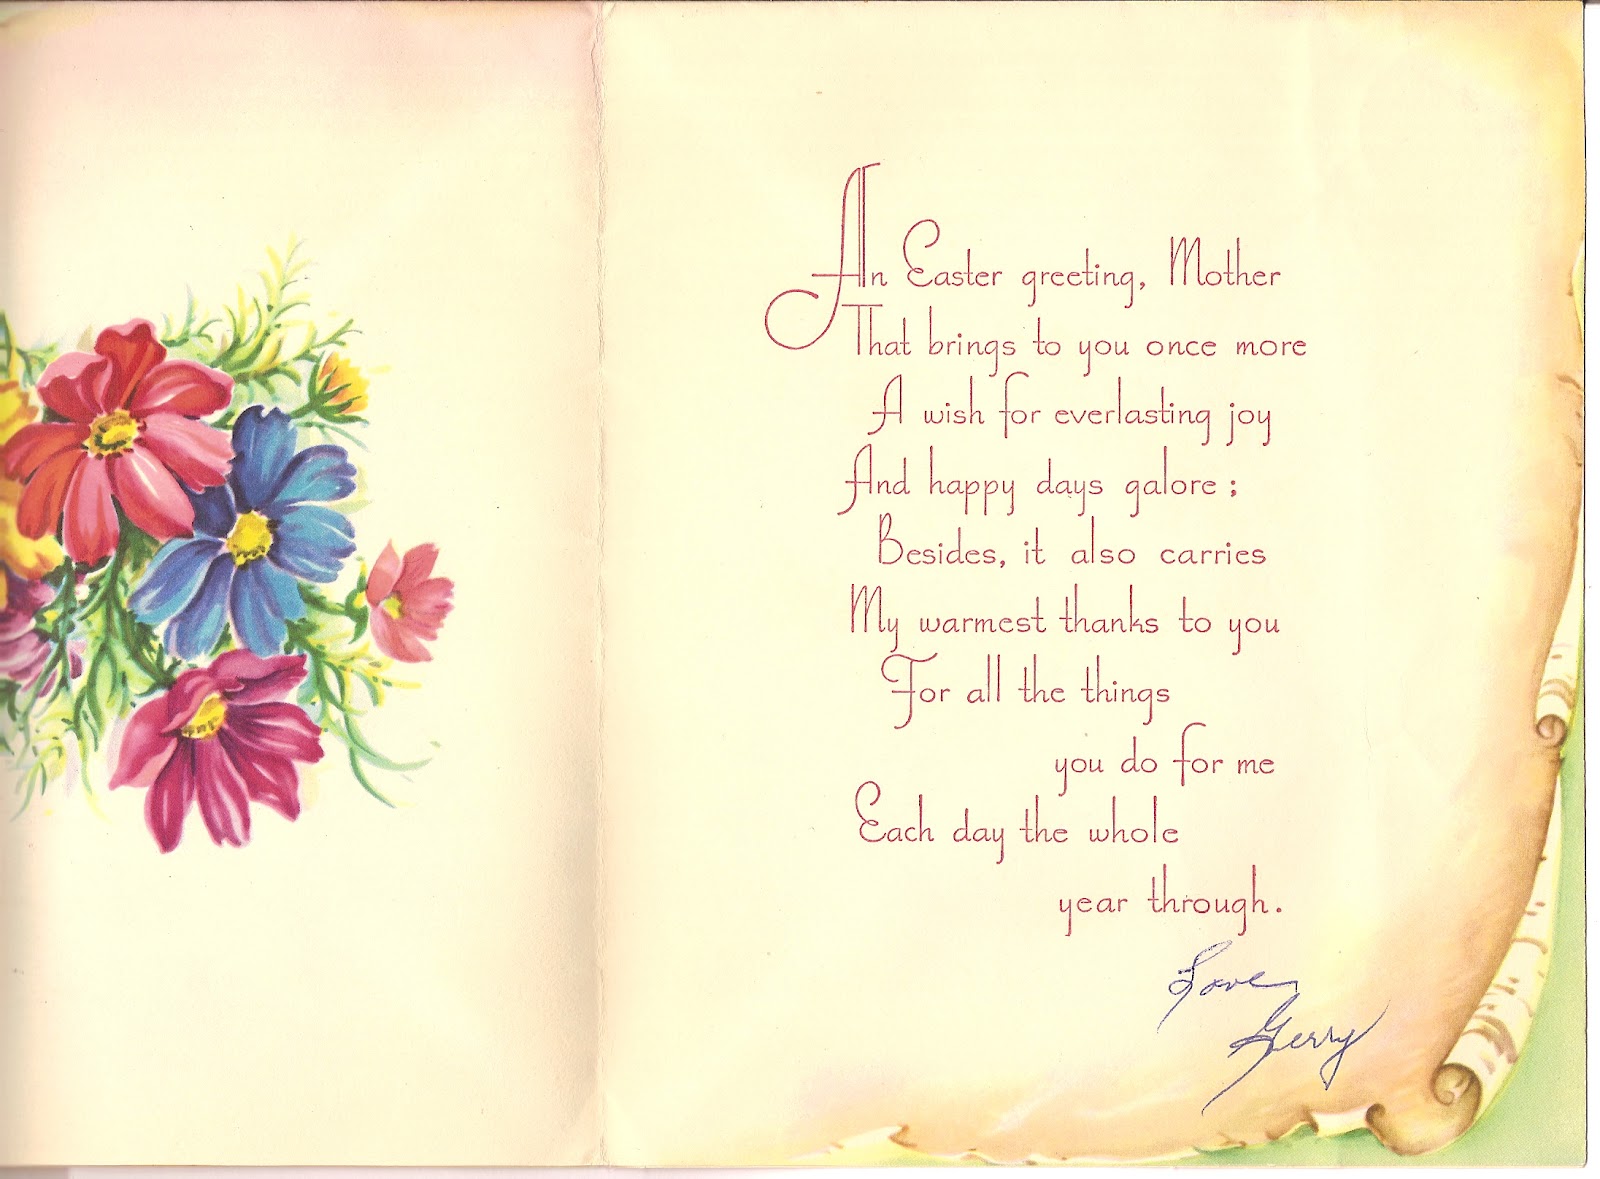 An Easter greeting, Mother
That brings to you once more
A wish for everlasting joy
And happy days galore;
Besides, it also carries
My warmest thanks to you
For all the things
you do for me
Each day the whole
year through.
Love
Gerry